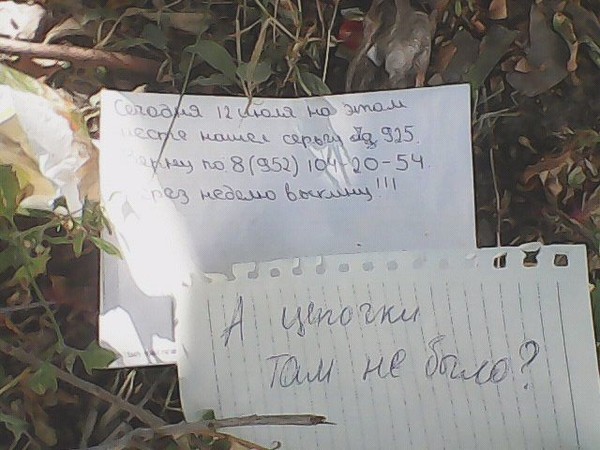 Сегодня 12 июля на этом
месте нашел серьги 925.
Верну по 8(952) 104-20-54.
Через неделю выкину!!!
А цепочки
там не было?